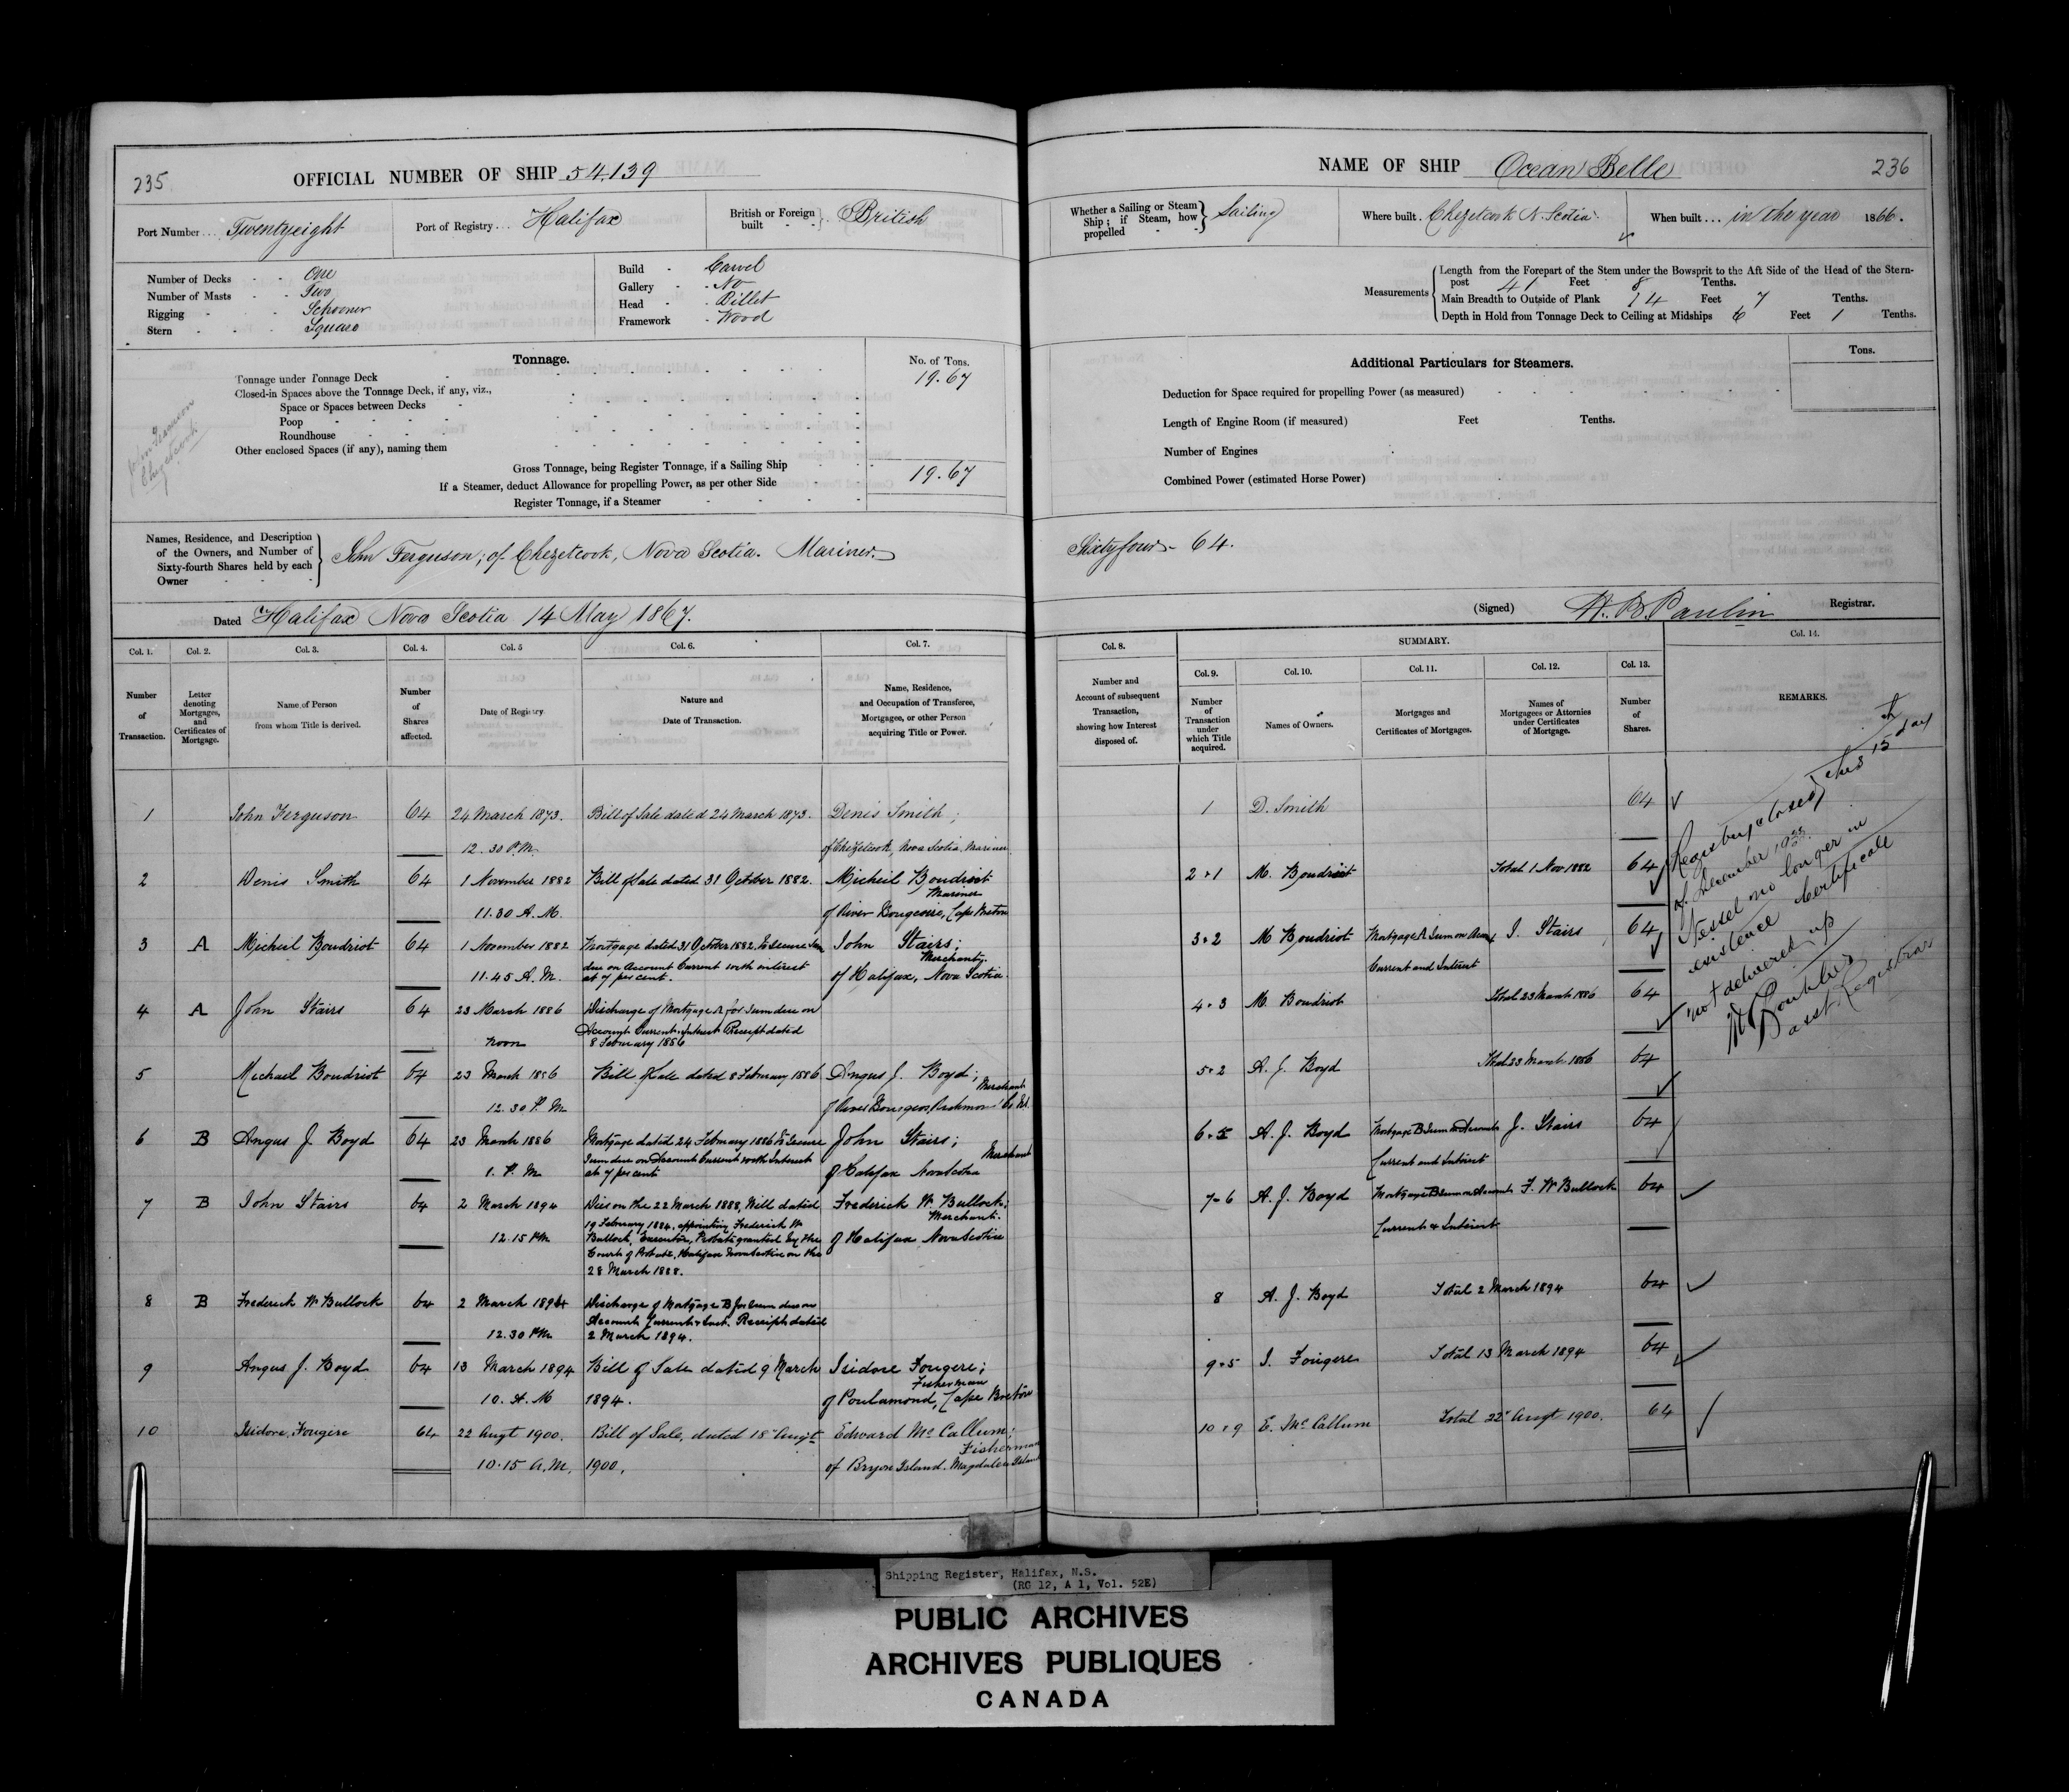 235
OFFICIAL NUMBER OF SHIP 54.139
Port Number ... Twentyeight
Port of Registry ... Halifax
British or Foreign built - - } British
Number of Decks - - One
Number of Masts - - Two
Rigging - - - Schooner
Stern - - - Square
Build - Carvel
Gallery - No
Head - Billet
Framework - Wood
Tonnage.
No. of Tons.
Tonnage under Tonnage Deck 19.67
Closed-in Spaces above the Tonnage Deck, if any, viz.,
Space or Spaces between Decks
Poop
Roundhouse
Other enclosed Spaces (if any), naming them
Gross Tonnage, being Register Tonnage, if a Sailing Ship 19.67
If a Steamer, deduct Allowance for propelling Power, as per other Side
Register Tonnage, if a Steamer
Chezetcook
Names, Residence, and Description
of the Owners, and Number of
Sixty-fourth Shares held by each
Owner
John Ferguson; of Chezetcook, Nova Scotia. Mariner.
Dated Halifax Nova Scotia 14 May 1867.
Col. 1. Col. 2. Col. 3. Col. 4. Col. 5 Col. 6. Col. 7.
Number of Transaction.
Letter denoting Mortgages, and Certificates of Mortgage.
Name of Person from whom Title is derived.
Number of Shares affected.
Date of Registry
Nature and Date of Transaction.
Name, Residence, and Occupation of Transferee, Mortgagee, or other Person acquiring Title or Power.
1 John Ferguson 64 24 March 1873. Bill of Sale dated 24 March 1873. Denis Smith;
12.30 P.M. of Chezetcook, Nova Scotia. Mariner.
2 Denis Smith 64 1 November 1882 Bill of Sale dated 31 October 1882. Micheil Boudriot
Mariner
11.30 A.M. of River Bourgeoise, Cape Breton
3 A Micheil Boudriot 64 1 November 1882 Mortgage dated 31 October 1882. To Secure Sum John Stairs;
Merchant
11.45 A.M. due on Account Current with interest at 7 per cent. of Halifax, Nova Scotia.
4 A John Stairs 64 23 March 1886 Discharge of Mortgage A for Sum due on
Account Current & Interest Receipt dated
noon 8 February 1886
5 Michael Boudriot 64 23 March 1886 Bill of Sale dated 8 February 1886 Angus J. Boyd;
Merchant
12.30 P.M. of River Bourgeois, Richmond Co. N.S.
6 B Angus J. Boyd 64 23 March 1886 Mortgage dated 24 February 1886 To Secure John Stairs;
Sum due on Account Current with Interest Merchant
1. P.M. at 7 per cent of Halifax Nova Scotia
7 B John Stairs 64 2 March 1894 Dies on the 22 March 1888, Will dated Frederick W. Bullock;
19 February 1884, appointing Frederick W. Merchant.
12.15 PM Bullock, Executor, Probate granted by the of Halifax Nova Scotia
Court of Probate, Halifax Nova Scotia on the
28 March 1888.
8 B Frederick W. Bullock 64 2 March 1894 Discharge of Mortgage B for Sum due on
Account Current & Inst. Receipt dated
12.30 PM 2 March 1894.
9 Angus J. Boyd 64 13 March 1894 Bill of Sale dated 9 March Isidore Fougere;
Fisherman
10. A.M 1894. of Poulamond, Cape Breton
10 Isidore Fougere 64 22 Augt 1900. Bill of Sale, dated 18 Augt Edward McCallum;
Fisherman
10.15 A.M. 1900. of Bryon Island. Magdalen Island
NAME OF SHIP Ocean Belle
236
Whether a Sailing or Steam Ship; if Steam, how propelled - - } Sailing
Where built. Chezetcook N. Scotia.
When built ... in the year 1866.
Measurements
Length from the Forepart of the Stem under the Bowsprit to the Aft Side of the Head of the Stern-
post 41 Feet 8 Tenths.
Main Breadth to Outside of Plank 14 Feet 7 Tenths.
Depth in Hold from Tonnage Deck to Ceiling at Midships 6 Feet 1 Tenths.
Additional Particulars for Steamers.
Tons.
Deduction for Space required for propelling Power (as measured)
Length of Engine Room (if measured) Feet Tenths.
Number of Engines
Combined Power (estimated Horse Power)
Sixtyfour - 64.
(Signed) H. B. Paulin Registrar.
Col. 8. SUMMARY. Col. 14.
Col. 9. Col. 10. Col. 11. Col. 12. Col. 13.
Number and Account of subsequent Transaction, showing how Interest disposed of.
Number of Transaction under which Title acquired.
Names of Owners.
Mortgages and Certificates of Mortgages.
Names of Mortgagees or Attornies under Certificates of Mortgage.
Number of Shares.
REMARKS.
1 D. Smith 64
2 . 1 M. Boudriot Total 1 Nov 1882 64
3 . 2 M Boudriot Mortgage A Sum on Acct J. Stairs 64
Current and Interest
4 . 3 M. Boudriot Total 23 March 1886 64
5 . 2 A. J. Boyd Total 23 March 1886 64
6 . 5 A. J. Boyd Mortgage B Sum on Accounts J. Stairs 64
Current and Interest
7 - 6 A. J. Boyd Mortgage B Sum on Accounts F. W Bullock 64
Current & Interest
8 A. J. Boyd Total 2 March 1894 64
9 . 5 I. Fougere Total 13 March 1894 64
10 . 9 E. McCallum Total 22 Augt 1900. 64
Registry closed this 15th day
of December
Vessel no longer in
existence Certificate
not delivered up
asst. Registrar
Shipping Register, Halifax, N.S.
(RG 12, A 1, Vol. 52E)
PUBLIC ARCHIVES
ARCHIVES PUBLIQUES
CANADA